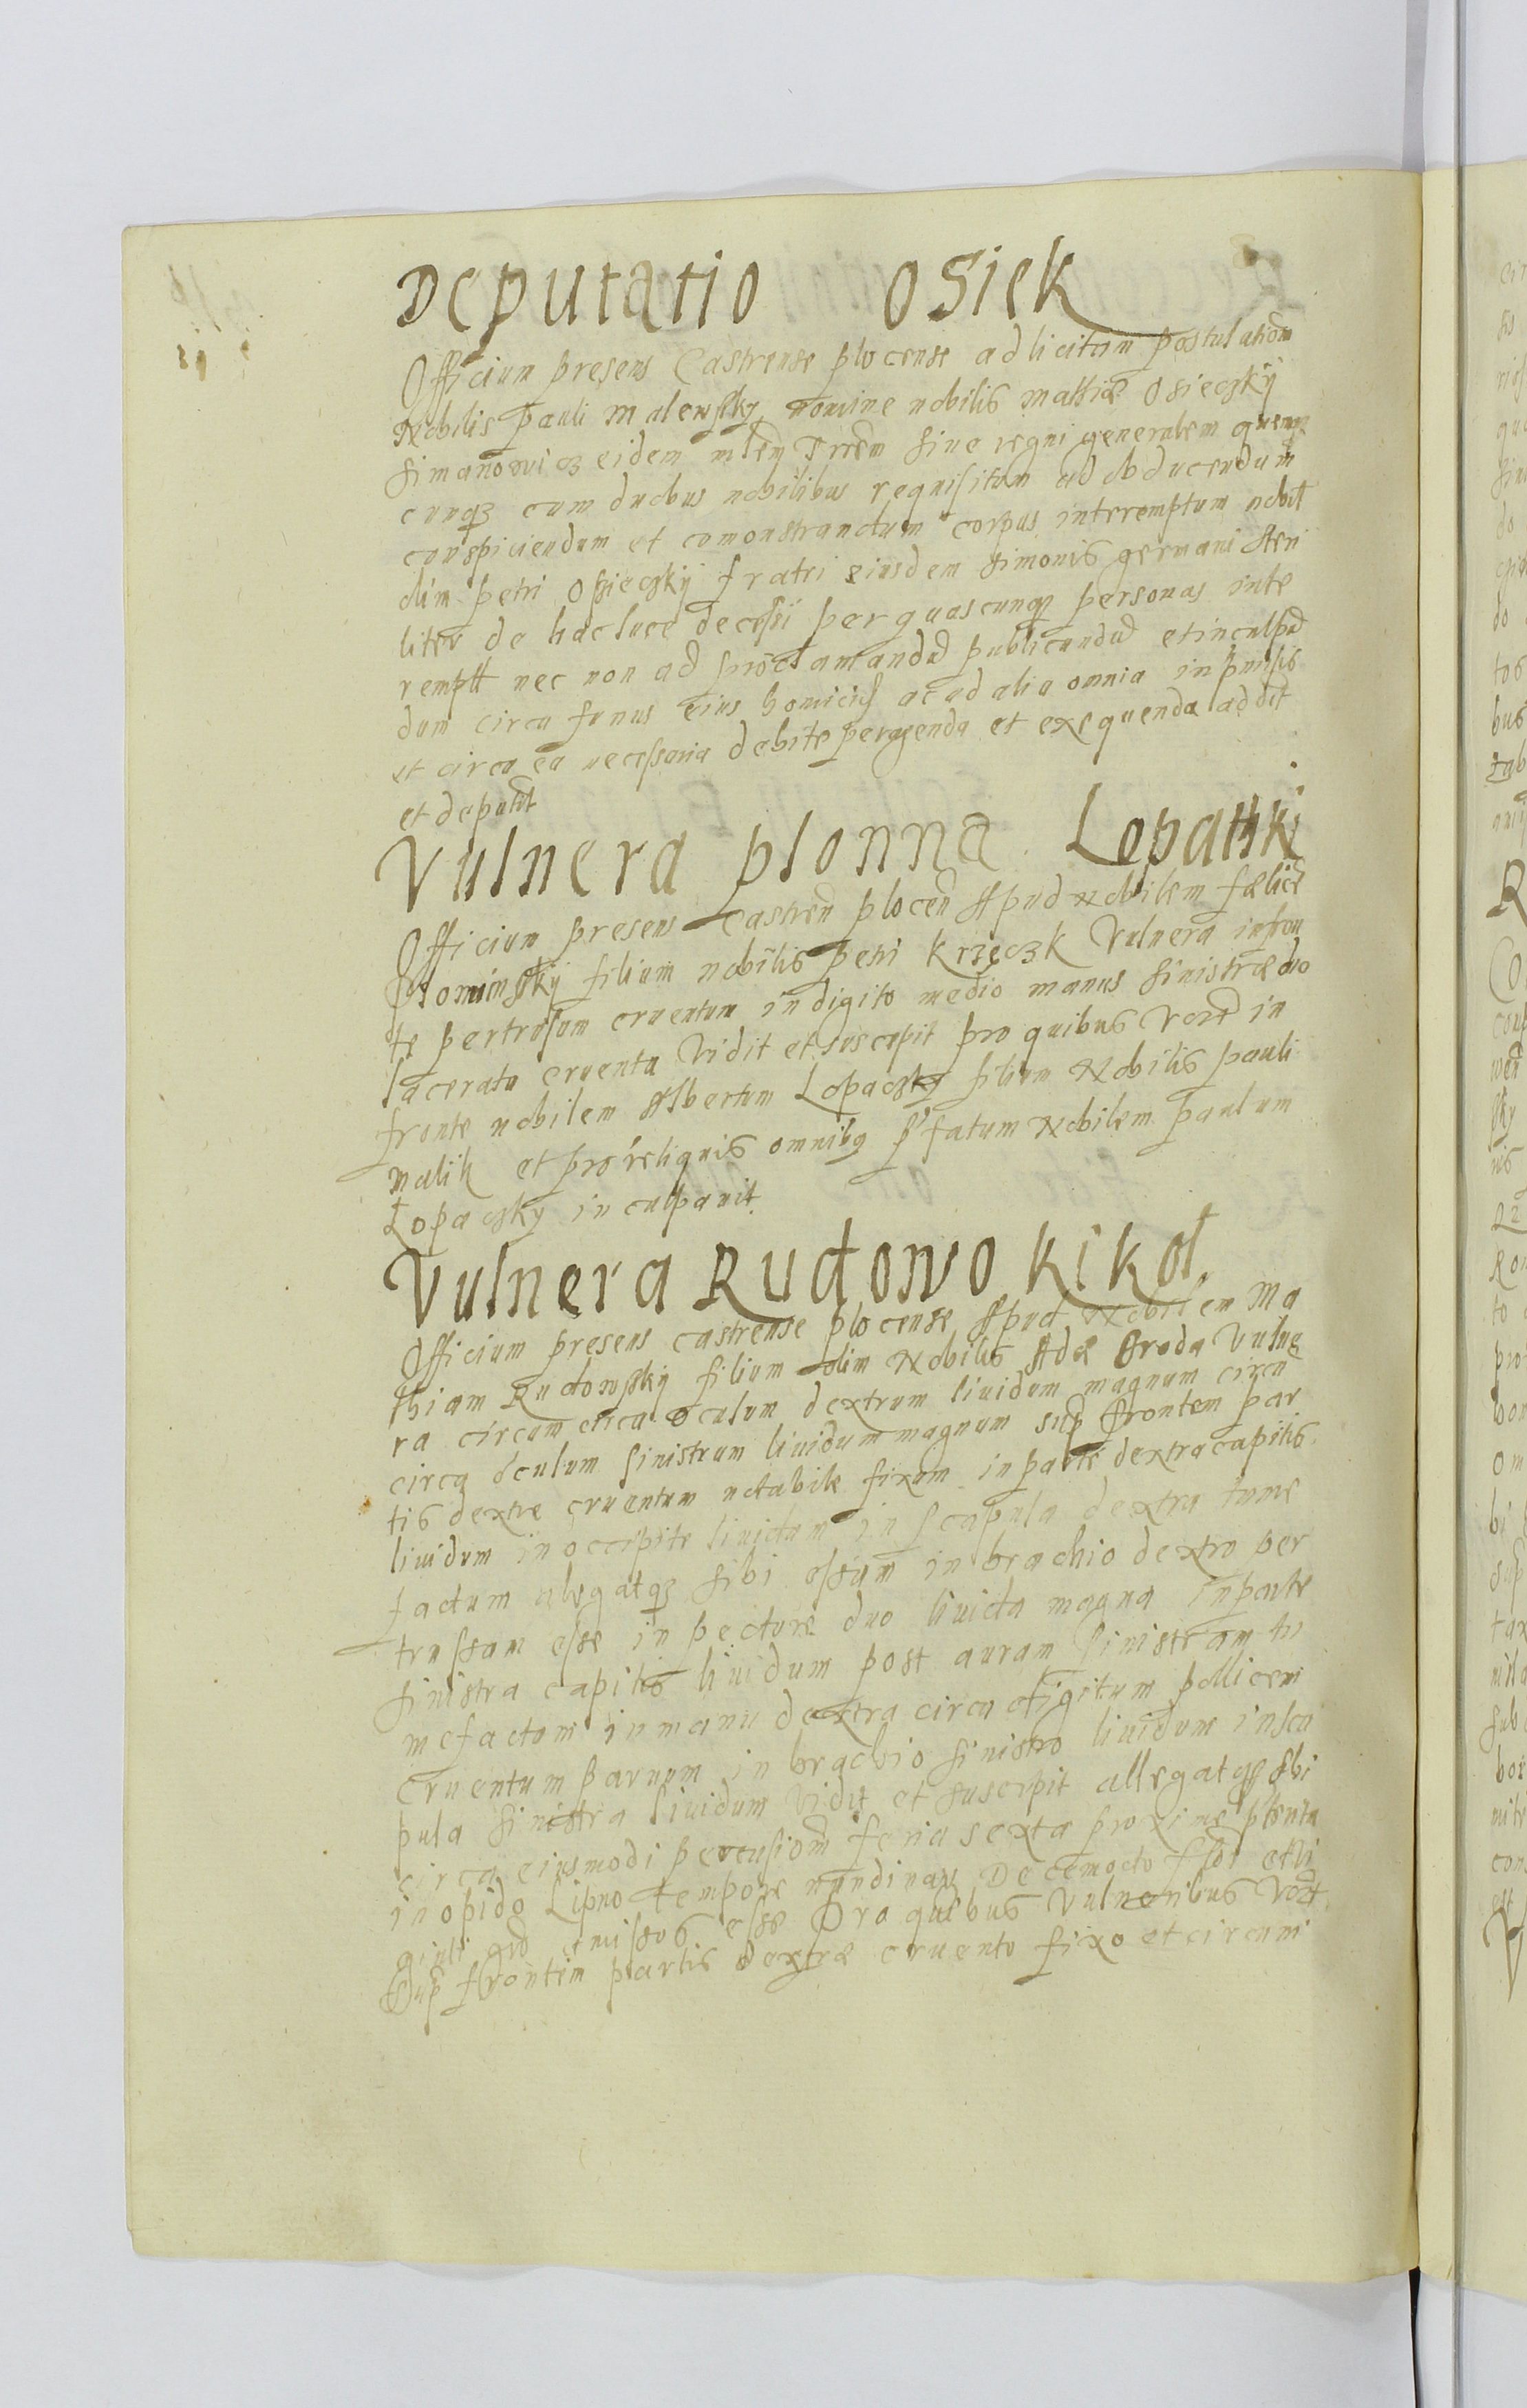 Deputatio Osiek
Officium presens Castrense plocense ad licitam postulationem
Nobilis Pauli Malewsky nomine nobilis Mathiæ Osieczkÿ
Simanowicz eidem siue regni generalem quemq
cunqz cum duobus nobilibus requisitum ad obducendum
conspiciendum et comonstrandum corpus interemptum nobil
olim Petri Osieczkÿ fratri eiusdem Simonis germani
liter de hac luce decessi per quascunqz personas inte
rempti nec non ad proclamandũ publicandũ et inculpã
dum circa funus eius homicid ac ad alia omnia in pmissis
et circa ea necessaria debite peragenda et exequenda addit
et deputat
Vulnera plonna Lopatzki
Officium presens Castren plocen Apud Nobilem fælicẽ
Plominsky filium nobilis Petri Krzęczk Vulnera in fron
te pertrusum cruentum in digito medio manus sinistræ duo
lacerata cruenta vidit et suscepit pro quibus in
fronte nobilem Albertum Lopaczky filium Nobilis Pauli
Malik et pro reliquis omnibq p̃fatum Nobilem Paulum
Lopaczky inculpauit.
Vulnera Rudowo Kikol
Officium presens castrense plocense Apud Nobilem Ma
thiam Rudowsky filium olim Nobilis Adæ Broda Vulne
ra circum circa oculum dextrum liuidum magnum circũ
circa oculum sinistrum liuidum magnum sup frontem par
tis dextræ cruentum notabile fixum in parte dextra capitis
liuidum in occipite liuidum in scapula dextra tume
factum alegatqz sibi ossum in brachio dextro per
trussum esse in pectore duo liuida magna in parte
sinistra capitis liuidum post auram sinistram tu
mefactum in manu dextra circa digitum pollicem
cruentum paruum in brachio sinistro liuidum in sca
pula sinistra liuidum vidit et suscepit allegatqz sibi
circa eiusmodi percusionem feria sexta proxime pterita
in opido Lipno tempore nundinar Decemocto flor et
esse Pro quibus Vulneribus
Sup frontem partis dextræ cruento fixo et circum